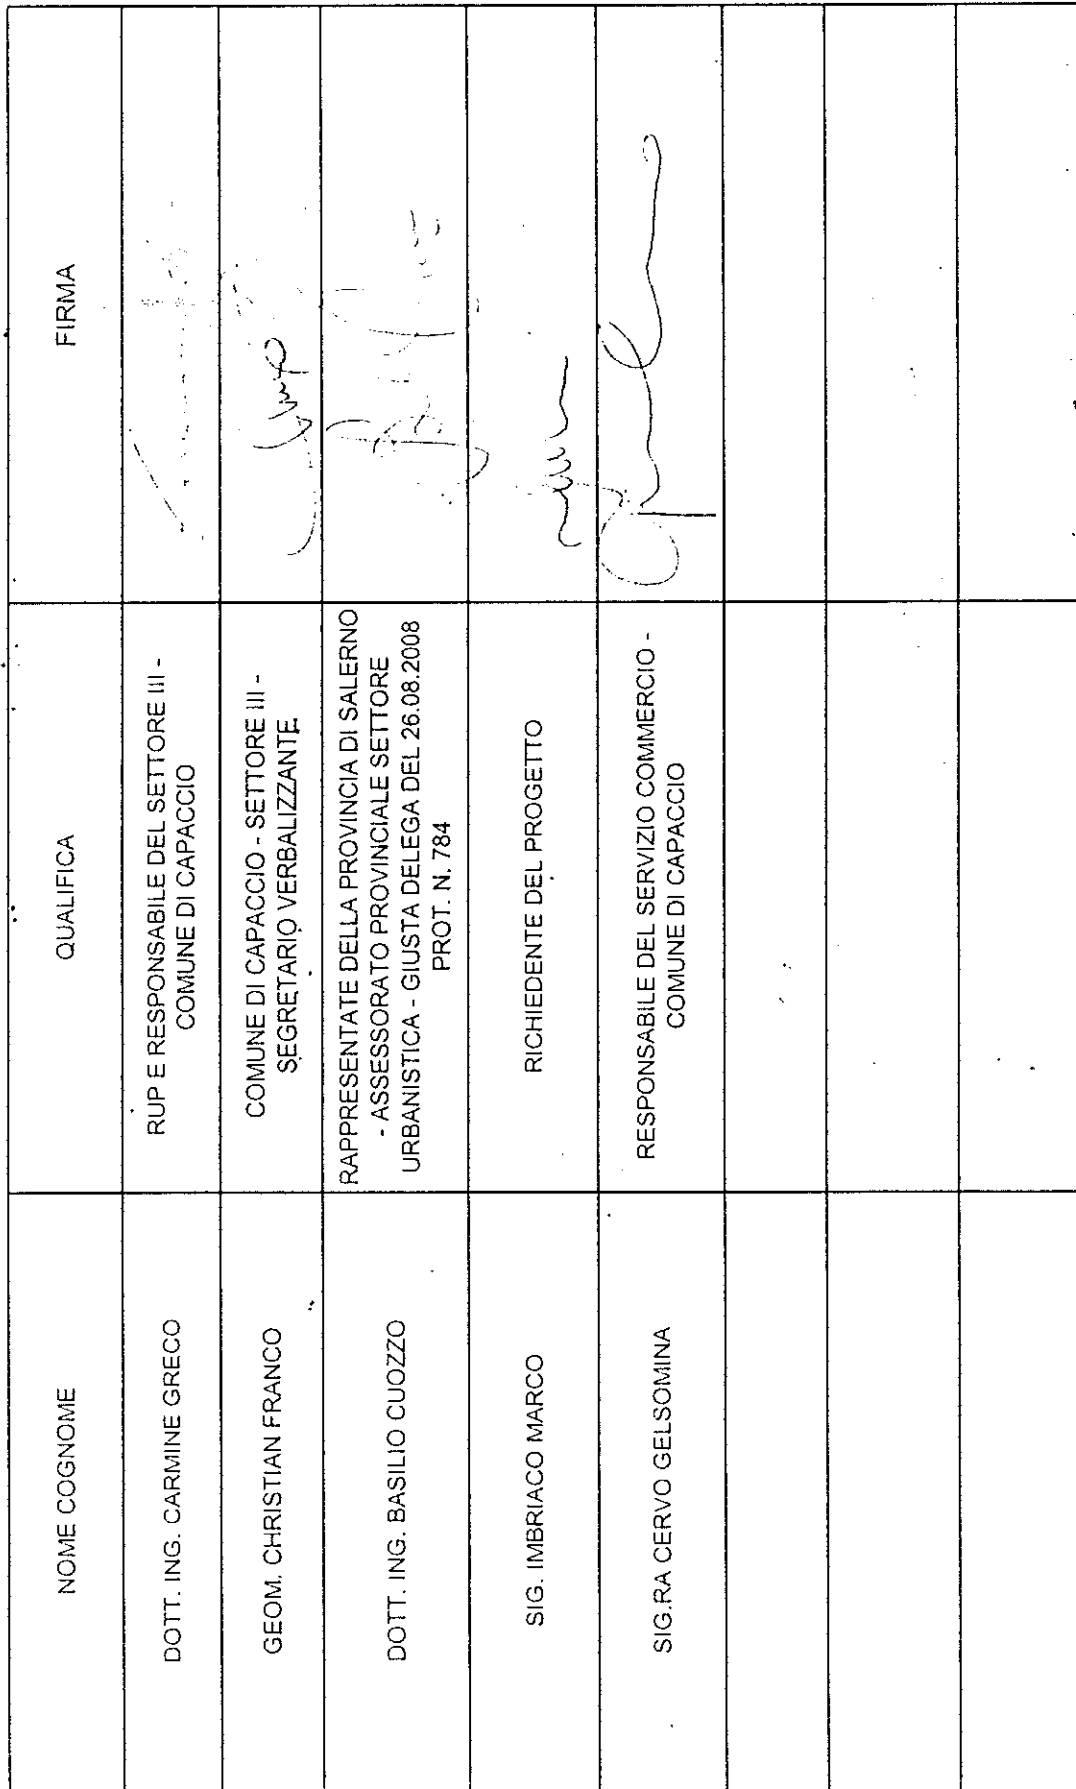 NOME COGNOME
QUALIFICA
FIRMA
DOTT. ING. CARMINE GRECO
RUP E RESPONSABILE DEL SETTORE III -
COMUNE DI CAPACCIO
GEOM. CHRISTIAN FRANCO
COMUNE DI CAPACCIO - SETTORE III -
SEGRETARIO VERBALIZZANTE
DOTT. ING. BASILIO CUOZZO
RAPPRESENTATE DELLA PROVINCIA DI SALERNO
- ASSESSORATO PROVINCIALE SETTORE
URBANISTICA - GIUSTA DELEGA DEL 26.08.2008
PROT. N. 784
SIG. IMBRIACO MARCO
RICHIEDENTE DEL PROGETTO
SIG.RA CERVO GELSOMINA
RESPONSABILE DEL SERVIZIO COMMERCIO -
COMUNE DI CAPACCIO